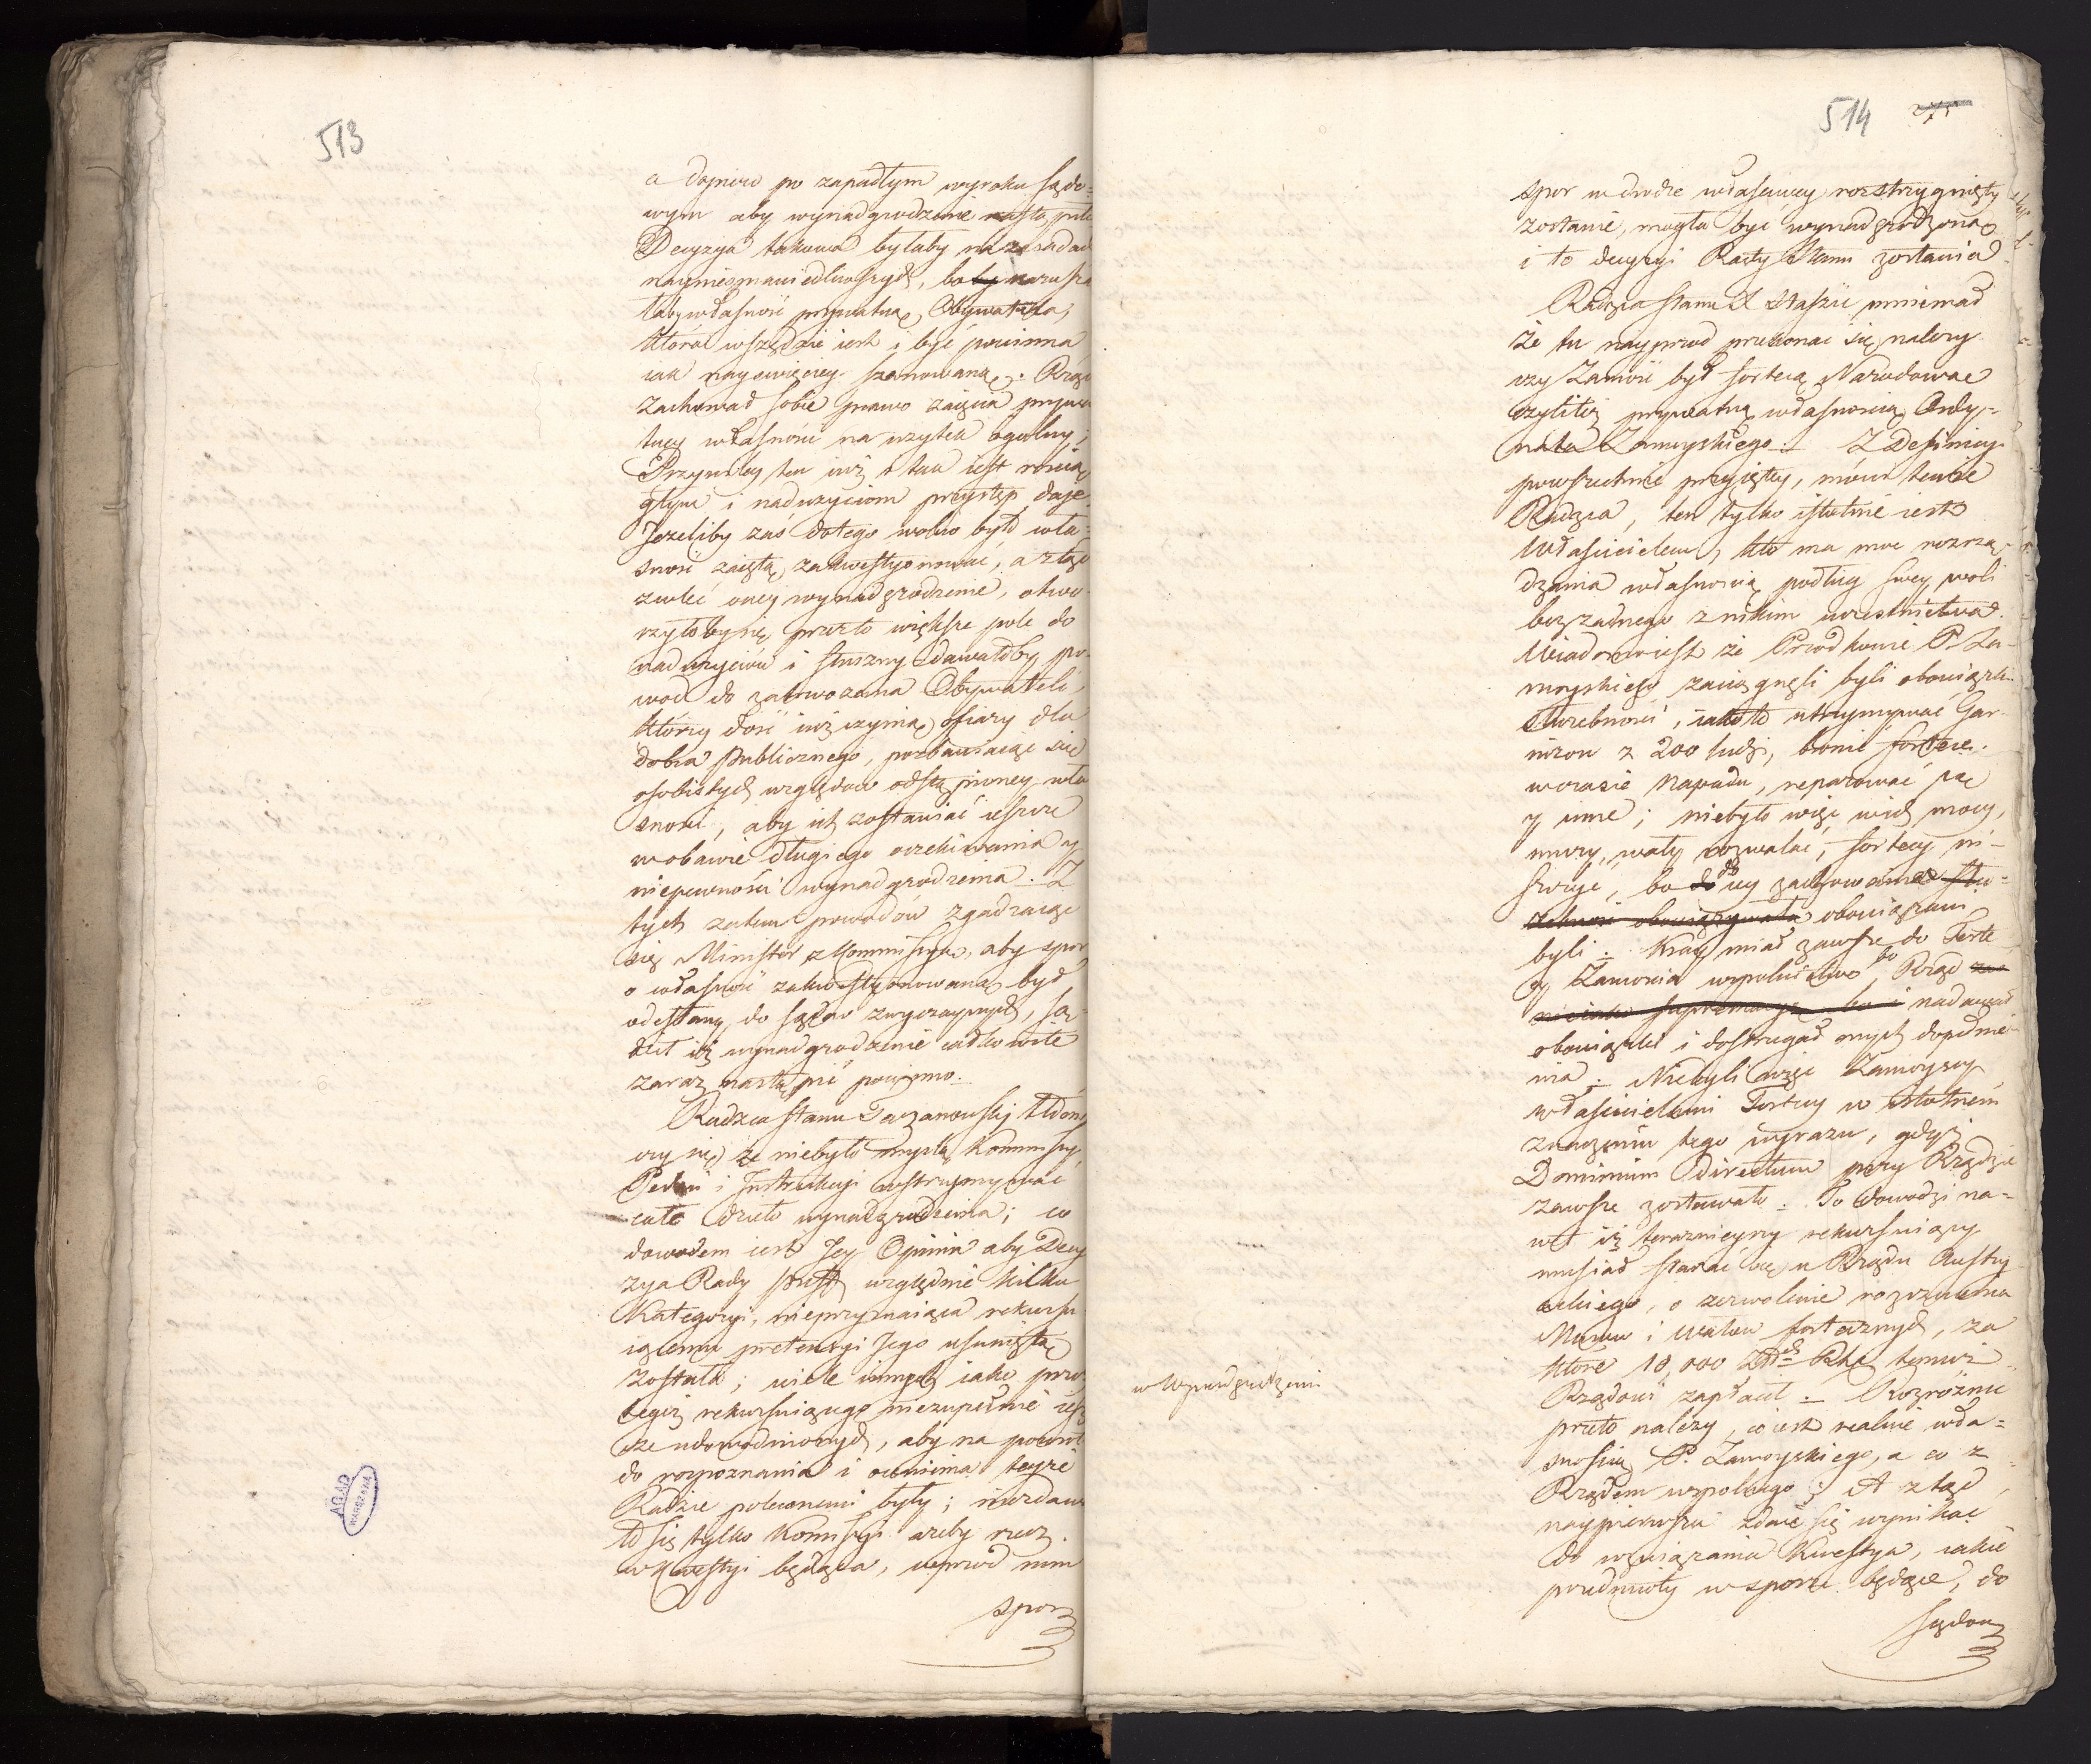 513
a dopiero po zapadłym wyroku sądo-
wym aby wynadgrodzenie nastąpiło
Decyzya takowa byłaby na zasadach
nayniesprawiedliwszych, bo by narusza
łaby własność prywatną Obywatela,
która wszędzie iest i być powinna
iak nayświęciey szanowaną. Rząd
zachował sobie prawo zaięcia prywa
tney własności na użytek ogólny;
Przywiley ten iuż i tak iest rością
głym i nadużyciom przystęp daje
Jeżeliby zaś do tego wolno było wła-
sność zaiętą zakwestyonować, a ztąd
zwlec oney wynadgrodzenie, otwo-
rzyłoby się przeto większe pole do
nadużyciów i słuszny dawałoby po-
wod do zatrwożenia Obywateli,
którzy dość iuż czynią ofiary dla
dobra publicznego, pozbawiaiąc się
osobistych względów odstąpioney wła
sności, aby ich zostawiać ieszcze
w obawie długiego oczekiwania y
niepewności wynadgrodzenia. Z
tych zatem powodów zgadzaiąc
się Minister z Kommissyą, aby spór
o własność zakwestyonowaną był
odesłany do sądów zwyczaynych, są-
dził iż wynadgrodzenie całkowite
zaraz nastąpić powinno.
Radzca stanu Taczanowski tłóma
czy się że niebyło myślą Kommissyi
Pet. i Instrukcyi wstrzymywać
całe dzieło wynadgrodzenia; co
dowodem iest Jey Opinia aby Decy
zya Rady Pref: względnie kilku
Kategoryi, nieprzyznaiąca rekursu
iącemu pretensyi Jego usuniętą
została; wiele innych iako przez
tegoż rekursuiącego niezupełnie iesz
cze udowodnionych, aby na powrót
do rozpoznania i ocenienia teyże
Radzie polecanemi były; niezdawa
ło się tylko Komissyi ażeby rzecz
w kwestyi będąca, wprzód nim
spor
AGAD
WARSZAWA
514 275
spor w drodze właściwey rozstrzygnięty
zostanie, mogła być wynadgrodzoną
i to decyzyi Rady Stanu zostawia
Radzca stanu X Staszic mniemał
że tu nayprzod przekonać się należy
czy Zamość był fortecą Narodową
czyliteż prywatną własnością Ordy-
nata Zamoyskiego. Z Definicyi
powszechnie przyiętey, mówił tenże
Radzca, ten tylko istotnie iest
Właścicielem, kto ma moc rozrzą-
dzania własnością podług swey woli
bez żadnego z nikim uczestnictwa.
Wiadomo iest że Przodkowie P. Za-
moyskiego zaciągneli byli obowiązki
służebności, iakoto utrzymywać Gar-
nizon z 200 ludzi, bronić fortece
w czasie napadu, reparować ją
y inne; niebyło więc w ich mocy,
mury, wały rozwalać, fortecy ni-
szczyć, bo do iey zachowania słu-
żebność obowiązywała obowiązani
byli. Kray miał zawsze do Forte
cy Zamościa wspołuctwo, bo Rząd
supremacyą bo i nadawał
obowiązki i dostrzegał onych dopełnie-
nia. Niebyli więc Zamoyscy
właścicielami Fortecy w istotném
znaczeniu tego wyrazu, gdyż
Dominium directum przy Rządzie
zawsze zostawało. To dowodzi na-
wet iż teraznieyszy rekursuiący
musiał starać się u Rządu Austry-
ackiego, o zezwolenie rozrzucenia
Murów i wałów fortecznych, za
które 10,000 Rh temuż
Rządowi zapłacił. Rozróżnić
przeto należy, co iest realnie wła-
snością P. Zamoyskiego, a co z
Rządem wspolnego; A ztąd
naypierwsza zdaie się wynikać
do rozwiązania Kwestya, iakie
przedmioty w sporze będące, do
w Wynadgrodzeniu
sądow